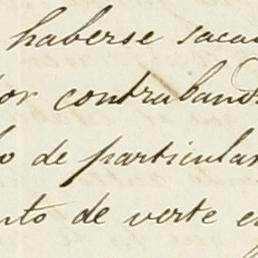 haberse saca
or contraband
o de particular
nto de verte e